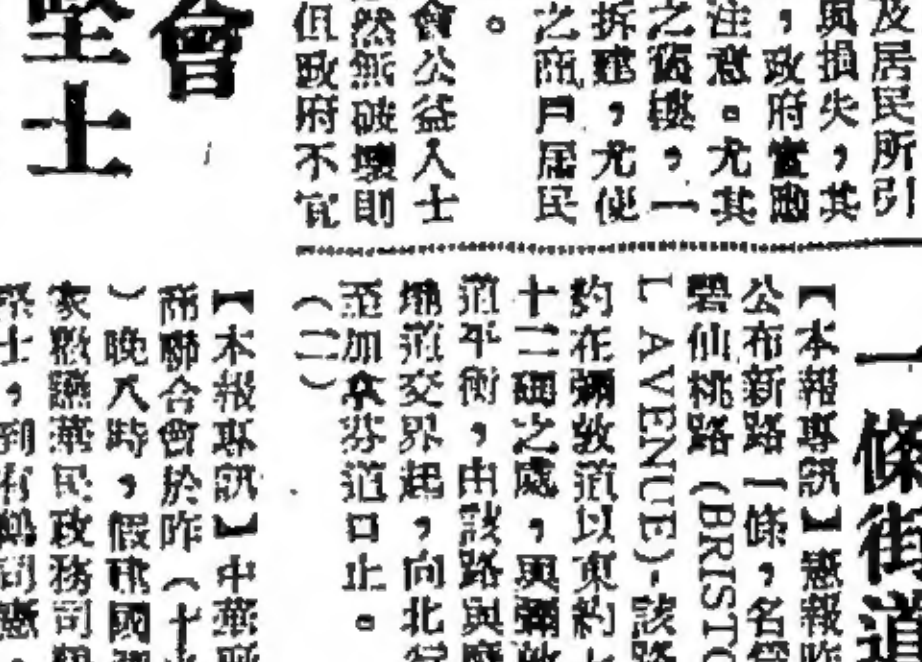 及居民所引
與損失,其
,政府當
注意。尤其
之舊樓,一
拆建,尤使
之商戶居民
。
會公益人士
然無破壞則
但政府不宜
會
堅士
一條街道
【本報專訊】憲報昨
公布新路一條,名
碧仙桃路(BRISTO
L AVENUE)-該路
約在彌敦道以東約
十二碼之處,與彌敦
道平衡,由該路與
麽道交界起,向北
至加拿芬道口止。
(二)
【本報專訊】中華
商聯合會於昨(十
)晚八時,假
家歡讌華民政務司
士,到有